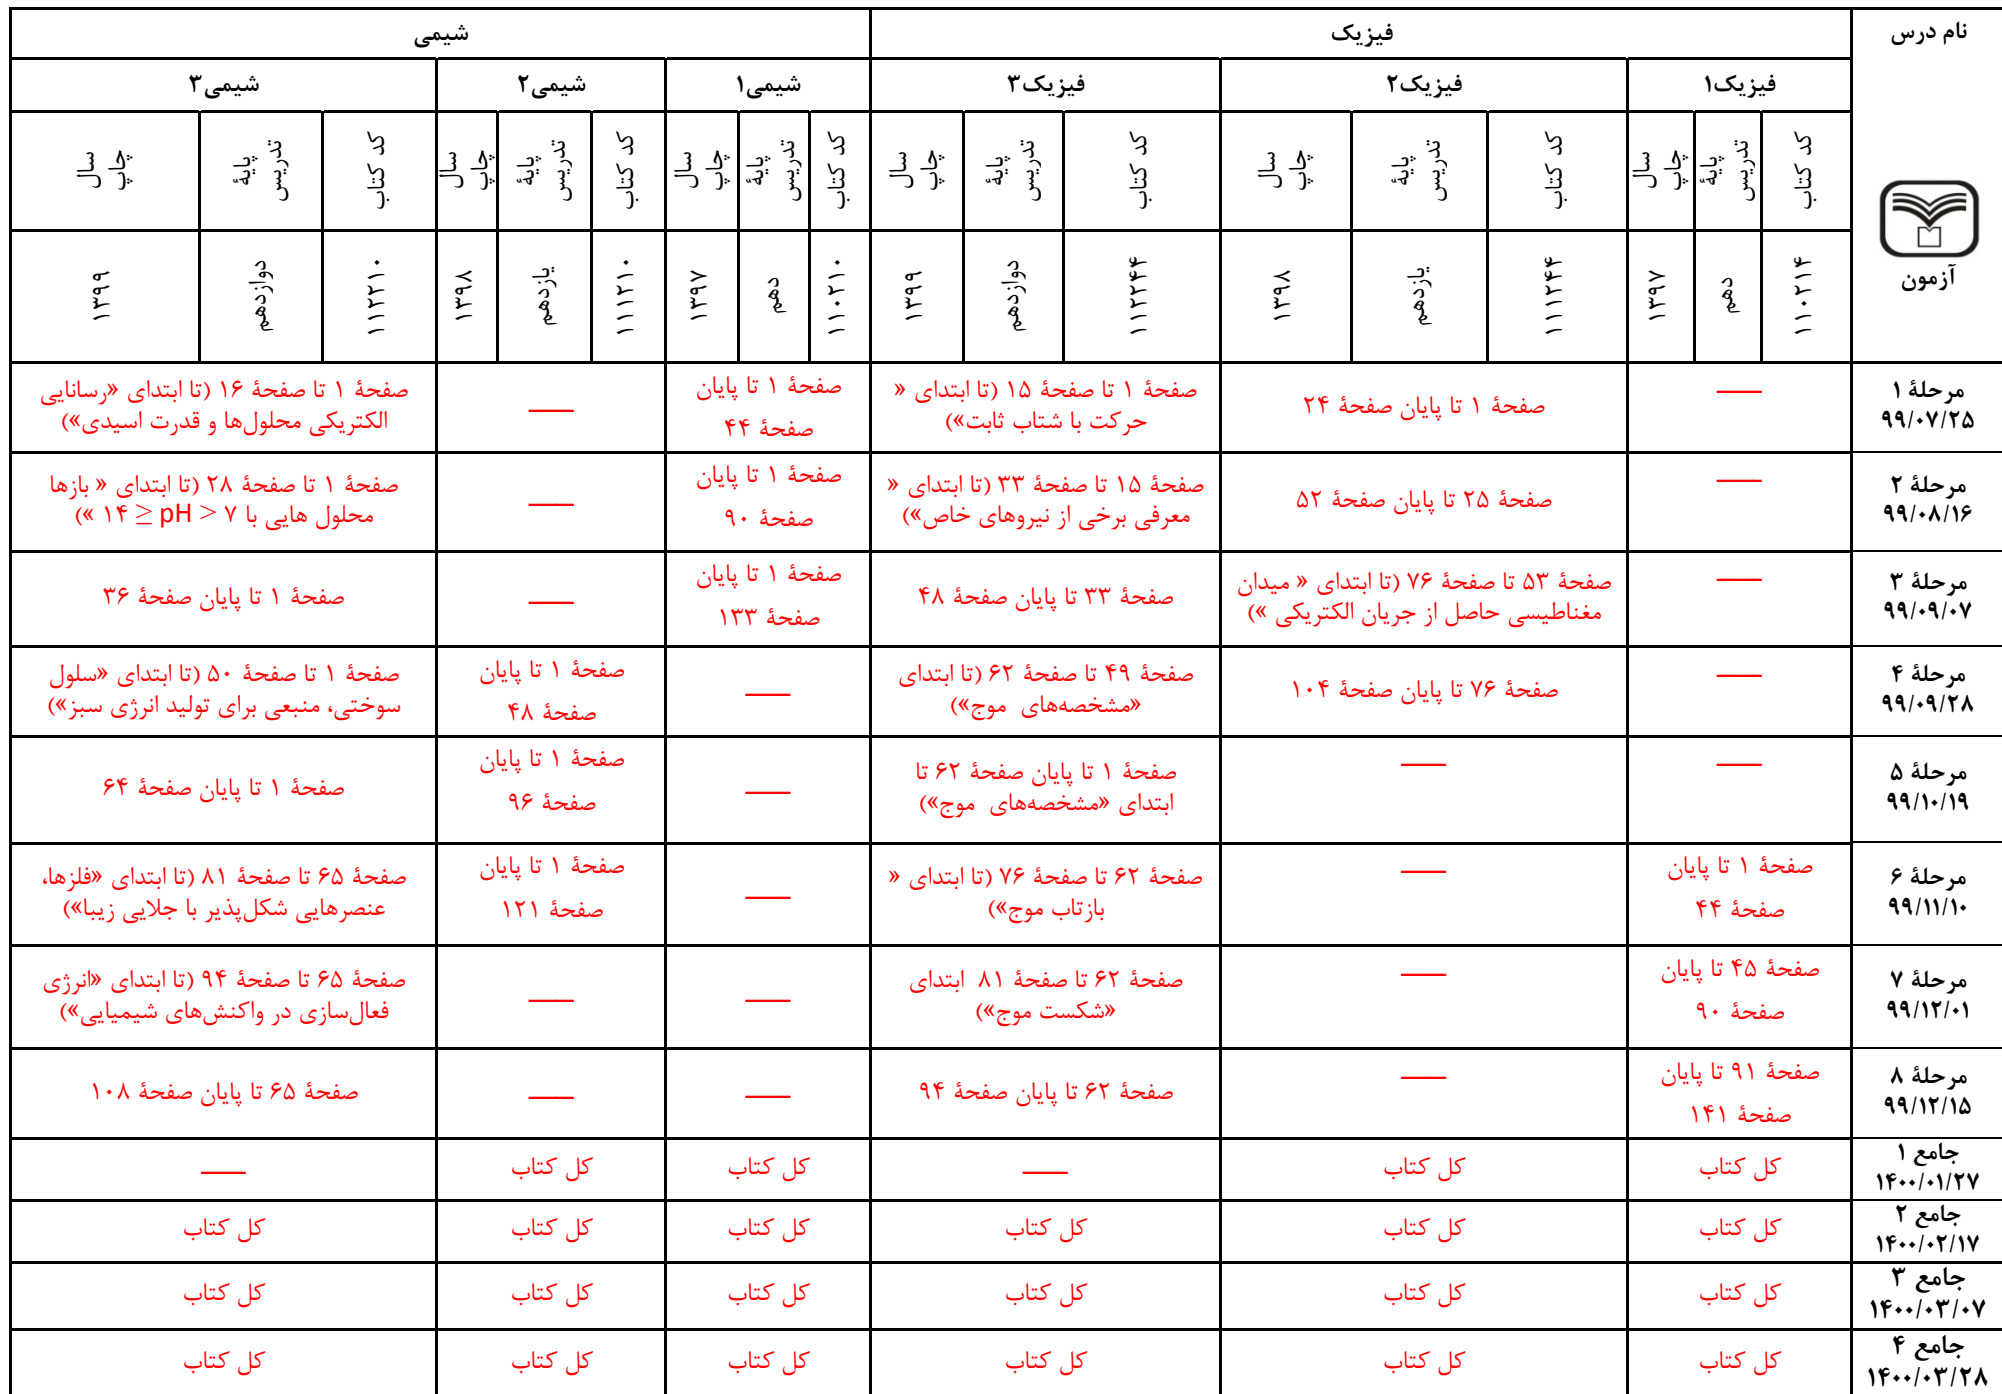 نام درس
فیزیک
شیمی
فیزیک۱
فیزیک۲
فیزیک۳
شیمی۱
شیمی۲
شیمی۳
آزمون
کد کتاب
پایۀ تدریس
سال چاپ
کد کتاب
پایۀ تدریس
سال چاپ
کد کتاب
پایۀ تدریس
سال چاپ
کد کتاب
پایۀ تدریس
سال چاپ
کد کتاب
پایۀ تدریس
سال چاپ
کد کتاب
پایۀ تدریس
سال چاپ
۱۱۰۲۱۴
دهم
۱۳۹۷
۱۱۱۲۴۴
یازدهم
۱۳۹۸
۱۱۲۲۴۴
دوازدهم
۱۳۹۹
۱۱۰۲۱۰
دهم
۱۳۹۷
۱۱۱۲۱۰
یازدهم
۱۳۹۸
۱۱۲۲۱۰
دوازدهم
۱۳۹۹
مرحلۀ ۱
۹۹/۰۷/۲۵
——
صفحۀ ۱ تا پایان صفحۀ ۲۴
صفحۀ ۱ تا صفحۀ ۱۵ (تا ابتدای «
حرکت با شتاب ثابت»)
صفحۀ ۱ تا پایان
صفحۀ ۴۴
——
صفحۀ ۱ تا صفحۀ ۱۶ (تا ابتدای «رسانایی
الکتریکی محلول‌ها و قدرت اسیدی»)
مرحلۀ ۲
۹۹/۰۸/۱۶
——
صفحۀ ۲۵ تا پایان صفحۀ ۵۲
صفحۀ ۱۵ تا صفحۀ ۳۳ (تا ابتدای «
معرفی برخی از نیروهای خاص»)
صفحۀ ۱ تا پایان
صفحۀ ۹۰
——
صفحۀ ۱ تا صفحۀ ۲۸ (تا ابتدای « بازها
محلول هایی با ۷ < pH ≤ ۱۴ »)
مرحلۀ ۳
۹۹/۰۹/۰۷
——
صفحۀ ۵۳ تا صفحۀ ۷۶ (تا ابتدای « میدان
مغناطیسی حاصل از جریان الکتریکی »)
صفحۀ ۳۳ تا پایان صفحۀ ۴۸
صفحۀ ۱ تا پایان
صفحۀ ۱۳۳
——
صفحۀ ۱ تا پایان صفحۀ ۳۶
مرحلۀ ۴
۹۹/۰۹/۲۸
——
صفحۀ ۷۶ تا پایان صفحۀ ۱۰۴
صفحۀ ۴۹ تا صفحۀ ۶۲ (تا ابتدای
«مشخصه‌های موج»)
——
صفحۀ ۱ تا پایان
صفحۀ ۴۸
صفحۀ ۱ تا صفحۀ ۵۰ (تا ابتدای «سلول
سوختی، منبعی برای تولید انرژی سبز»)
مرحلۀ ۵
۹۹/۱۰/۱۹
——
——
صفحۀ ۱ تا پایان صفحۀ ۶۲ تا
ابتدای «مشخصه‌های موج»)
——
صفحۀ ۱ تا پایان
صفحۀ ۹۶
صفحۀ ۱ تا پایان صفحۀ ۶۴
مرحلۀ ۶
۹۹/۱۱/۱۰
صفحۀ ۱ تا پایان
صفحۀ ۴۴
——
صفحۀ ۶۲ تا صفحۀ ۷۶ (تا ابتدای «
بازتاب موج»)
——
صفحۀ ۱ تا پایان
صفحۀ ۱۲۱
صفحۀ ۶۵ تا صفحۀ ۸۱ (تا ابتدای «فلزها،
عنصرهایی شکل‌پذیر با جلایی زیبا»)
مرحلۀ ۷
۹۹/۱۲/۰۱
صفحۀ ۴۵ تا پایان
صفحۀ ۹۰
——
صفحۀ ۶۲ تا صفحۀ ۸۱ ابتدای
«شکست موج»)
——
——
صفحۀ ۶۵ تا صفحۀ ۹۴ (تا ابتدای «انرژی
فعال‌سازی در واکنش‌های شیمیایی»)
مرحلۀ ۸
۹۹/۱۲/۱۵
صفحۀ ۹۱ تا پایان
صفحۀ ۱۴۱
——
صفحۀ ۶۲ تا پایان صفحۀ ۹۴
——
——
صفحۀ ۶۵ تا پایان صفحۀ ۱۰۸
جامع ۱
۱۴۰۰/۰۱/۲۷
کل کتاب
کل کتاب
——
کل کتاب
کل کتاب
——
جامع ۲
۱۴۰۰/۰۲/۱۷
کل کتاب
کل کتاب
کل کتاب
کل کتاب
کل کتاب
کل کتاب
جامع ۳
۱۴۰۰/۰۳/۰۷
کل کتاب
کل کتاب
کل کتاب
کل کتاب
کل کتاب
کل کتاب
جامع ۴
۱۴۰۰/۰۳/۲۸
کل کتاب
کل کتاب
کل کتاب
کل کتاب
کل کتاب
کل کتاب